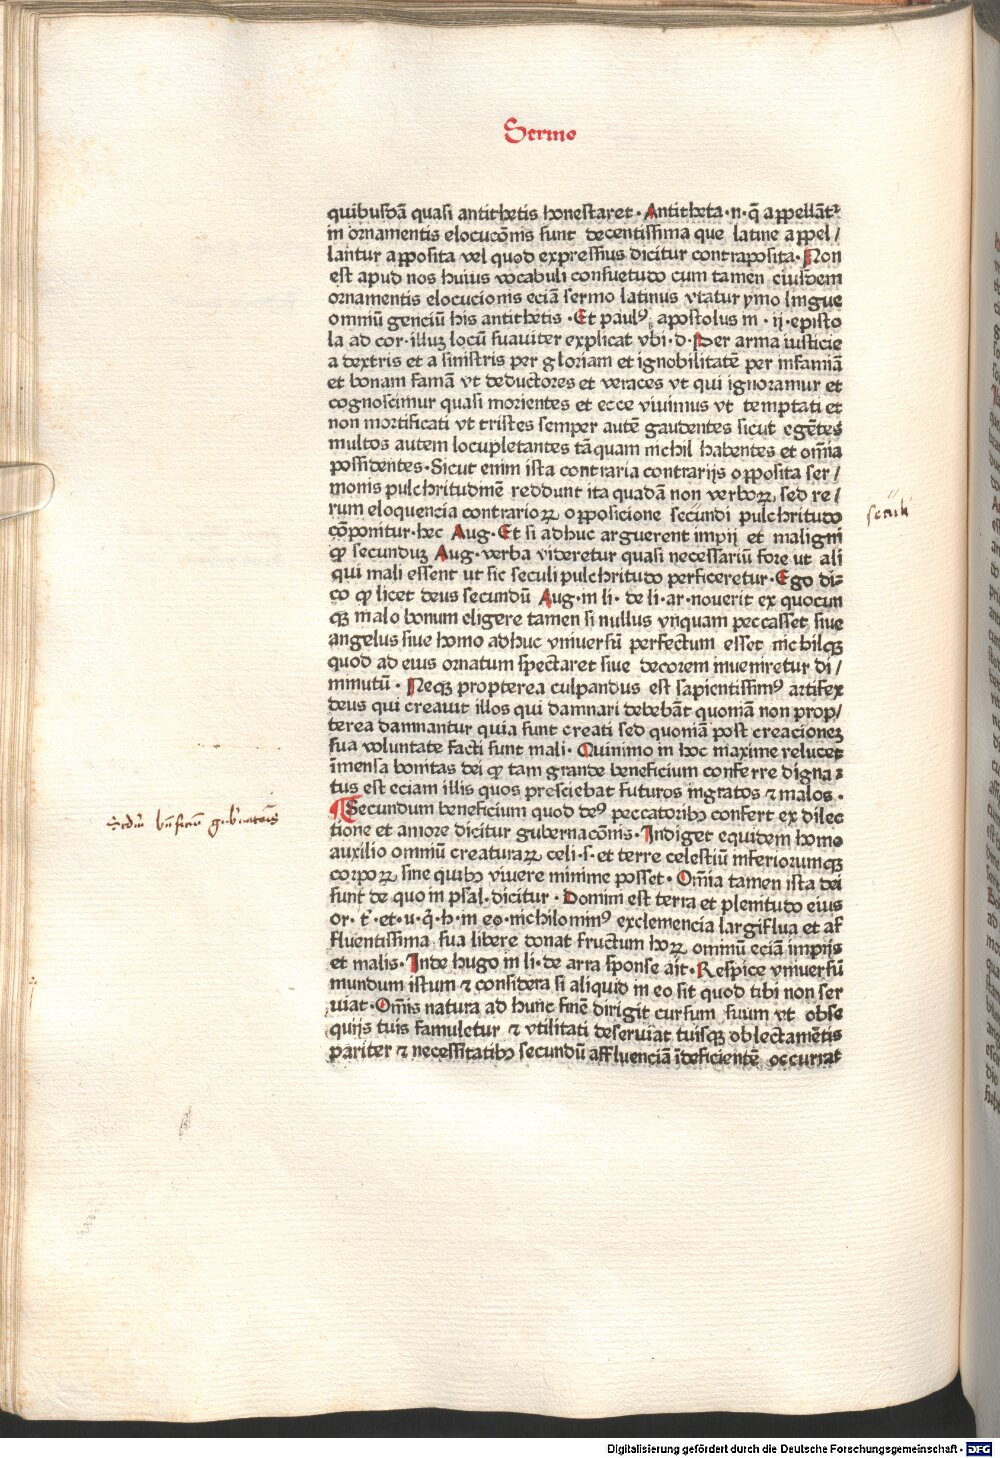 Sermo
quibusdā quasi antithetis honestaret· Antitheta·n·q̄ appellāt᷑
in ornamentis elocucōnis sunt decentissima que latine appel/
lantur apposita vel quod expressius dicitur contraposita· Non
est apud nos huius vocabuli consuetudo cum tamen eiusdem
ornamentis elocucionis eciā sermo latinus vtatur ymo lingue
omniū genciū his antithetis ·Et paulꝰ apostolus in · ij ·episto
la ad cor·illuꝫ locū suauiter explicat vbi·d·Per arma iusticie
a dextris et a sinistris per gloriam et ignobilitatē per infamiā
et bonam famā vt deductores et veraces vt qui ignoramur et
cognoscimur quasi morientes et ecce viuimus vt temptati et
non mortificati vt tristes semper autē gaudentes sicut egētes
multos autem locupletantes tāquam nichil habentes et om̄ia
possidentes·Sicut enim ista contraria contrarijs opposita ser/
monis pulchritudinē reddunt ita quadā non verboꝝ sed re/
rum eloquencia contrarioꝝ opposicione secundi pulchritudo
cōponitur·hec Aug·Et si adhuc arguerent impij et maligni
ꝙ secunduꝫ Aug·verba videretur quasi necessariū fore ut ali
qui mali essent ut sic seculi pulchritudo perficeretur·Ego di⸗
co ꝙ licet deus secundū Aug·in li· de li·ar·nouerit ex quocun
qꝫ malo bonum eligere tamen si nullus vnquam peccasset siue
angelus siue homo adhuc vniuersū perfectum esset nichilqꝫ
quod ad eius ornatum spectaret siue decorem inueniretur di/
minutū · Neqꝫ propterea culpandus est sapientissimꝰ artifex
deus qui creauit illos qui damnari debebāt quoniā non prop/
terea damnantur quia sunt creati sed quoniā post creacioneꝫ
sua voluntate facti sunt mali· Quinimo in hoc maxime relucet
īmensa bonitas dei ꝙ tam grande beneficium conferre digna⸗
tus est eciam illis quos presciebat futuros ingratos ⁊ malos ·
¶Secundum beneficium quod deꝰ peccatoribꝫ confert ex dilec
tione et amore dicitur gubernacōnis·Indiget equidem homo
auxilio omniū creaturaꝝ celi·s·et terre celestiū inferiorumqꝫ
corpoꝝ sine quibꝫ viuere minime posset· Om̄ia tamen ista dei
sunt de quo in psal·dicitur · Domini est terra et plenitudo eius
or·t̄·et·u·q̄·h·in eo·nichilominꝰ exclemencia largiflua et af
fluentissima sua libere donat fructum hoꝝ omniū eciā impijs
et malis·Inde hugo in li·de arra sponse ait·Respice vniuersū
mundum istum ⁊ considera si aliquid in eo sit quod tibi non ser
uiat·Om̄is natura ad hunc finē dirigit cursum suum vt obse
quijs tuis famuletur ⁊ vtilitati deseruiat tuisqꝫ oblectamētis
pariter ⁊ necessitatibꝫ secundū affluenciā īdeficientē occurrat
seculi